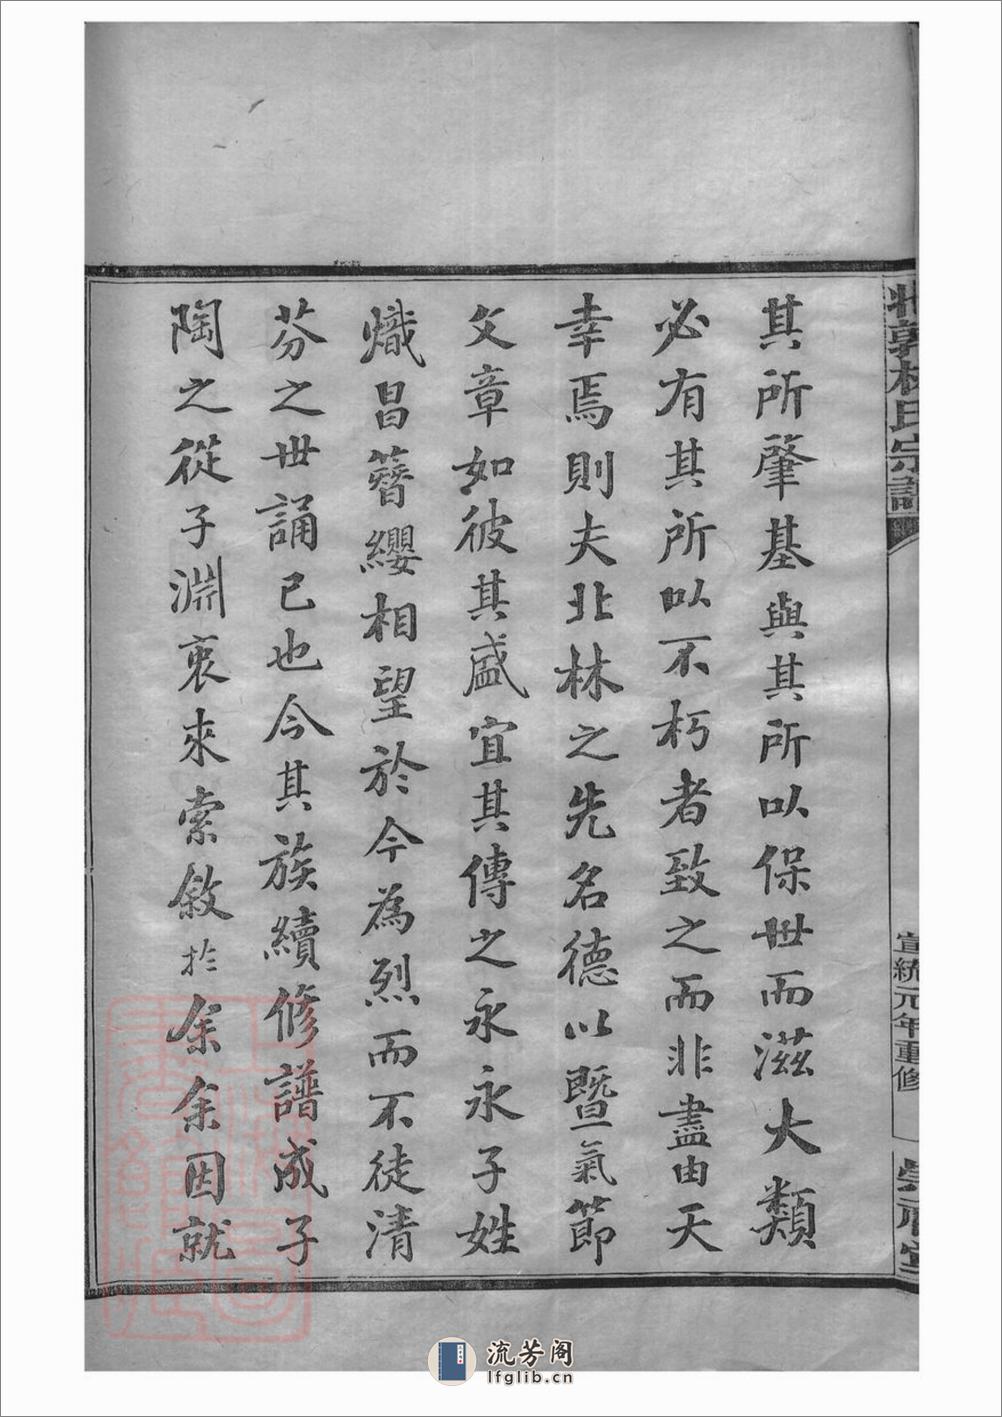 其所肇基與其所以保世而滋大類
必有其所以不朽者致之而非盡由天
幸焉則夫北林之先名德以暨氣節
文章如彼其盛宜其傳之永永子姓
熾昌簪纓相望於今為烈而不徒清
芬之世誦已也今其族續修譜成子
陶之從子淵衷來索敘於余余因就
林氏宗譜
宣統元年重修
流芳阁
lfglib.cn